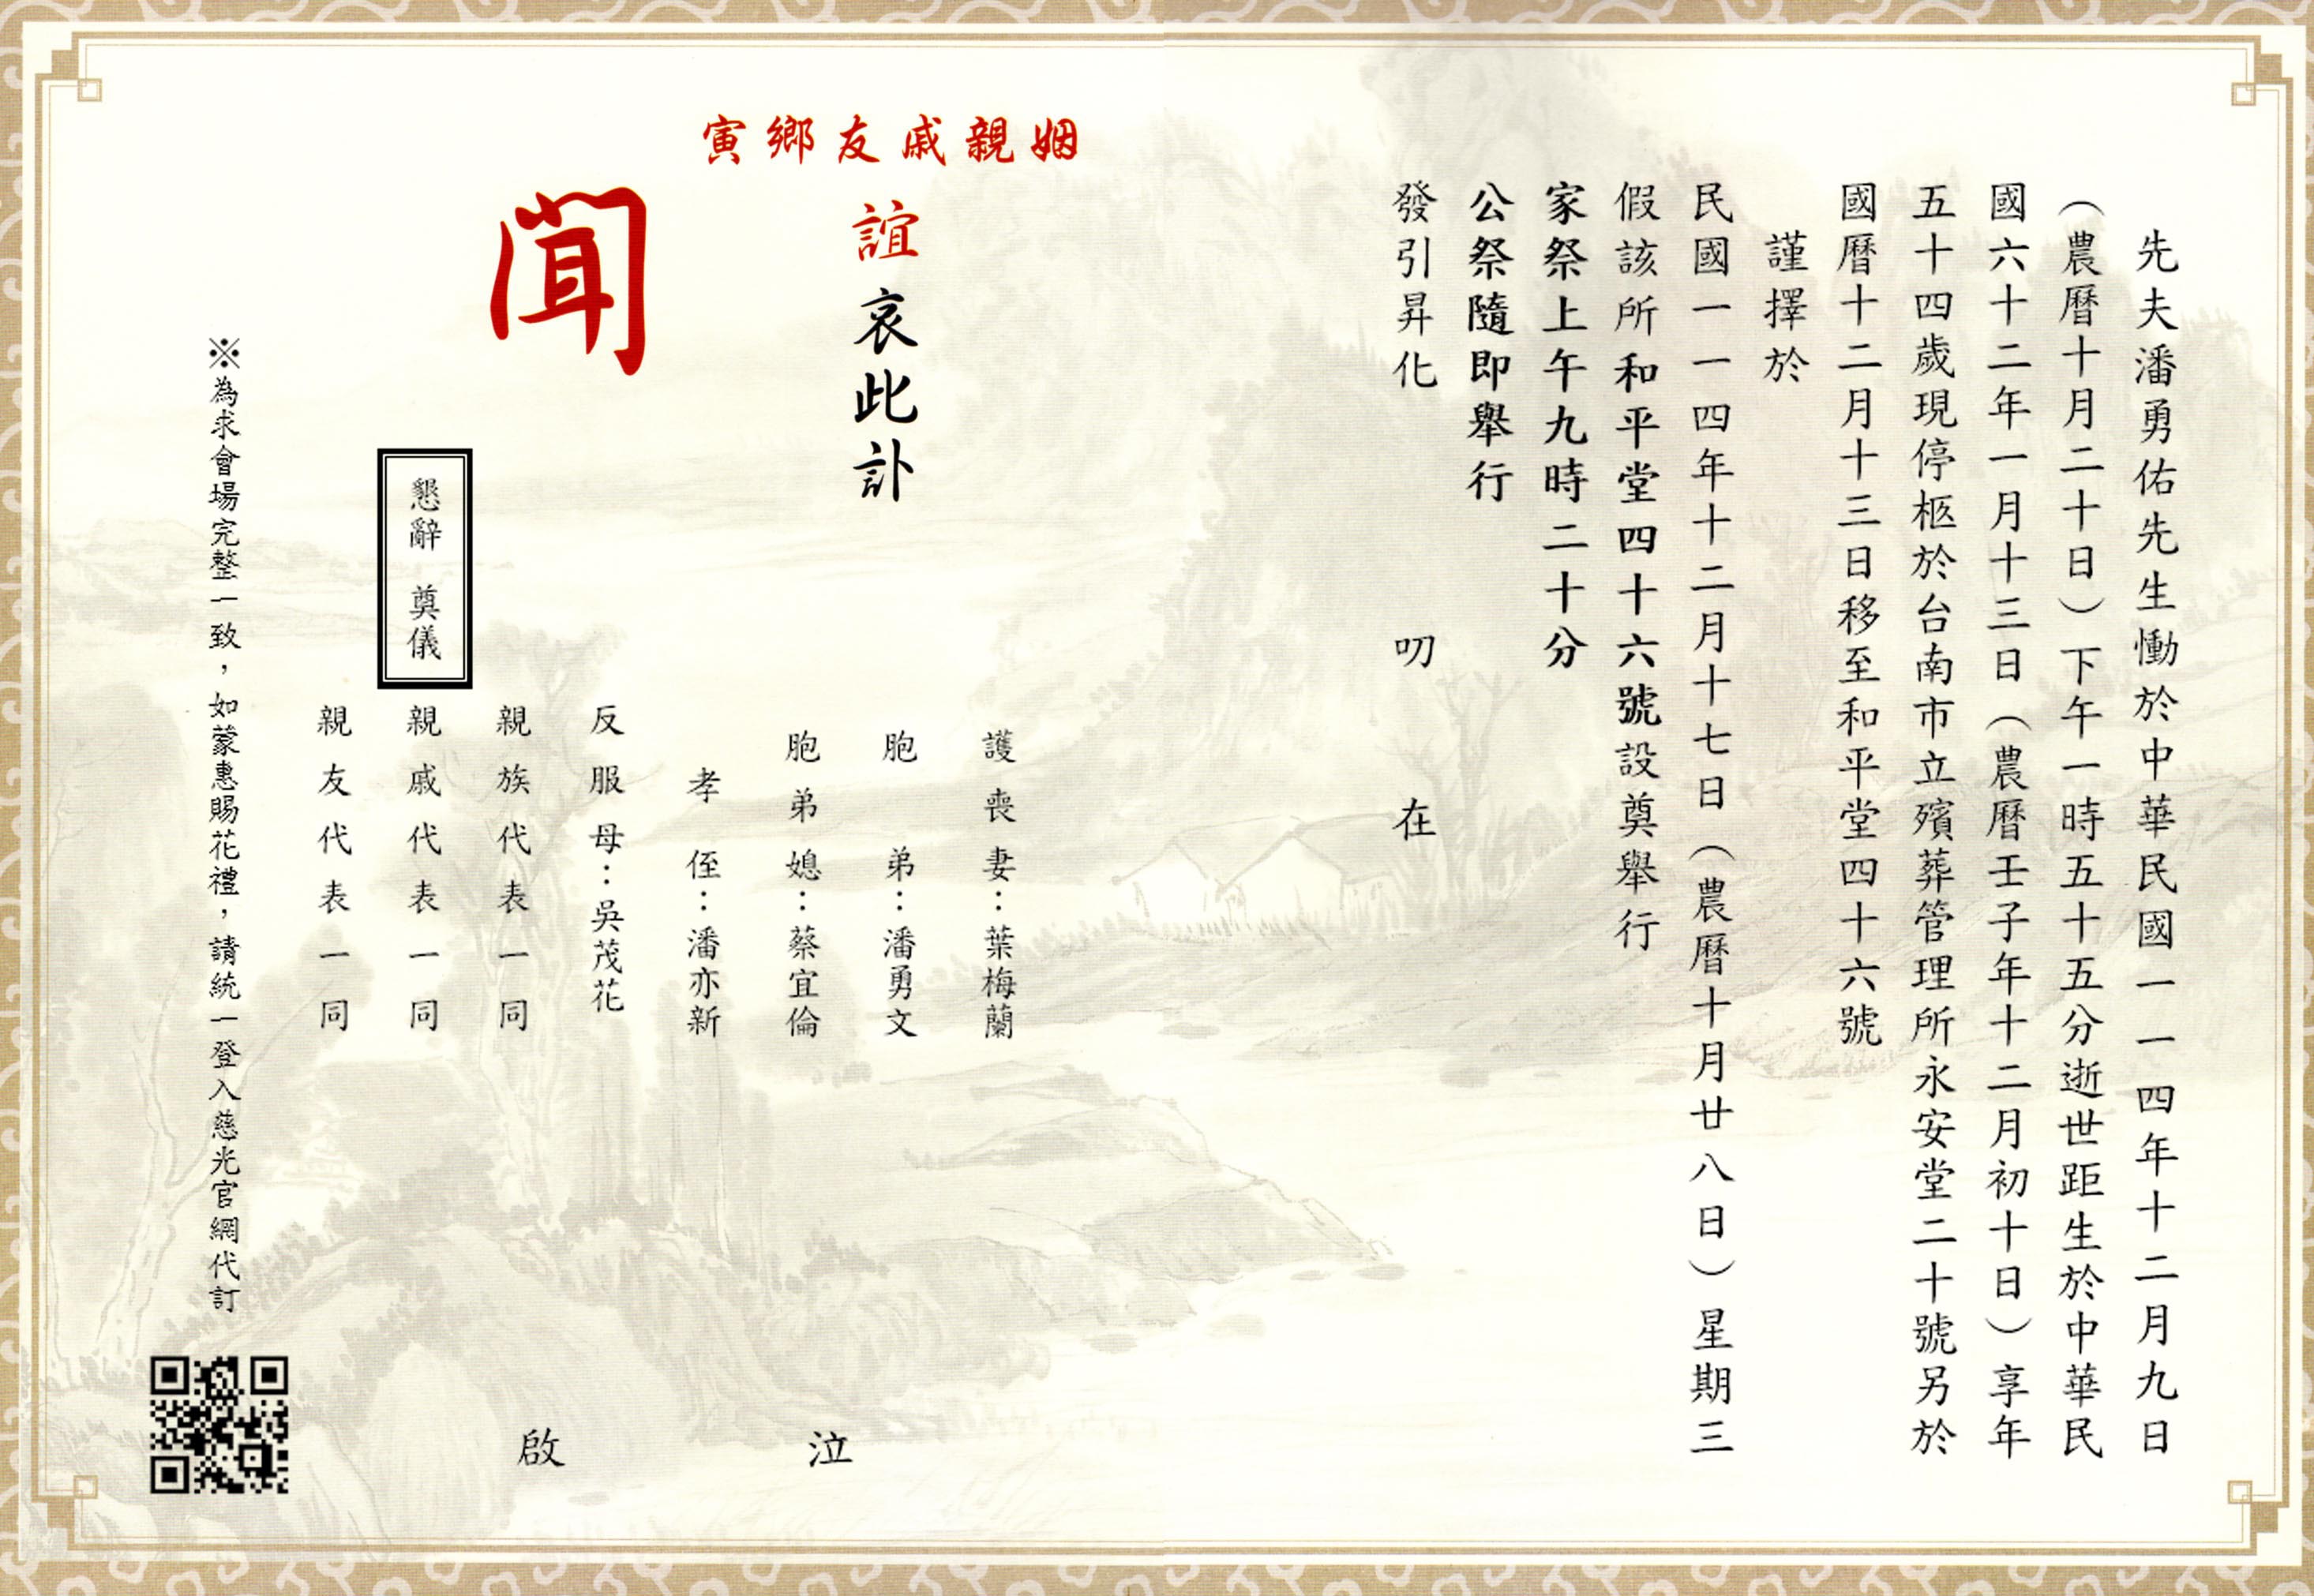 先夫潘勇佑先生慟於中華民國一一四年十二月九日
（農曆十月二十日）下午一時五十五分逝世距生於中華民
國六十二年一月十三日（農曆壬子年十二月初十日）享年
五十四歲現停柩於台南市立殯葬管理所永安堂二十號另於
國曆十二月十三日移至和平堂四十六號
謹擇於
民國一一四年十二月十七日（農曆十月廿八日）星期三
假該所和平堂四十六號設奠舉行
家祭上午九時二十分
公祭隨即舉行
發引昇化 叨在
姻親戚友鄉寅
誼哀此訃
聞
護喪妻：葉梅蘭
胞弟：潘勇文
胞弟媳：蔡宜倫
孝侄：潘亦新
反服母：吳茂花
親族代表一同
親戚代表一同
親友代表一同
泣啟
懇辭 奠儀
※為求會場完整一致，如蒙惠賜花禮，請統一登入慈光官網代訂